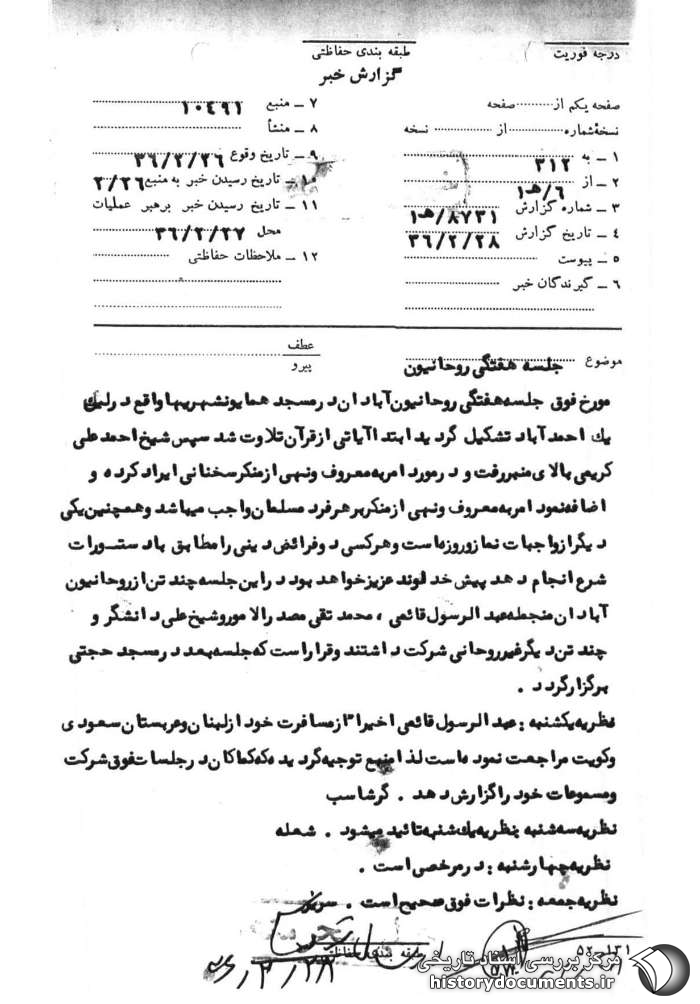 درجه فوریت
طبقه بندی حفاظتی
گزارش خبر
صفحه یکم از ............ صفحه
نسخه شماره ............ از ............ نسخه
۱ – به ۳۱۲
۲ – از ۶/ﻫ۱
۳ – شماره گزارش ۸۷۳۱/ﻫ۱
۴ – تاریخ گزارش ۳۶/۲/۲۸
۵ – پیوست
۶ – گیرندگان خبر
۷ – منبع ۱۰۴۹۱
۸ – منشأ
۹ – تاریخ وقوع ۳۶/۲/۲۶
۱۰ – تاریخ رسیدن خبر به منبع ۲/۲۶
۱۱ – تاریخ رسیدن خبر برهبر عملیات
محل ۳۶/۲/۲۷
۱۲ – ملاحظات حفاظتی
موضوع جلسه هفتگی روحانیون
عطف
پیرو
مورخ فوق جلسه هفتگی روحانیون آبادان در مسجد همایونشهریها واقع در لین
یک احمدآباد تشکیل گردید ابتدا آیاتی از قرآن تلاوت شد سپس شیخ احمد علی
کریمی بالای منبر رفت و در مورد امر به معروف و نهی از منکر سخنانی ایراد کرده و
اضافه نمود امر به معروف و نهی از منکر بر هر فرد مسلمان واجب میباشد و همچنین یکی
دیگر از واجبات نماز و روزه است و هر کسی دو فرائض دینی را مطابق با دستورات
شرع انجام دهد پیش خداوند عزیز خواهد بود در این جلسه چند تن از روحانیون
آبادان منجمله عبدالرسول قائمی ، محمد تقی مصدرالامور و شیخ علی دانشگر و
چند تن دیگر غیر روحانی شرکت داشتند و قرار است که جلسه بعد در مسجد حجتی
برگزار گردد .
نظریه یکشنبه : عبدالرسول قائمی اخیرا از مسافرت خود از لبنان و عربستان سعودی
و کویت مراجعت نموده است لذا منبع توجیه گردیده که کماکان در جلسات فوق شرکت
و مسموعات خود را گزارش دهد . گرشاسب
نظریه سه شنبه : نظریه یک شنبه تائید میشود . شعله
نظریه چهارشنبه : در مرخصی است .
نظریه جمعه : نظرات فوق صحیح است .
طبقه بندی حفاظتی
۳۶/۲/۲۸
مرکز بررسی اسناد تاریخی
historydocuments.ir